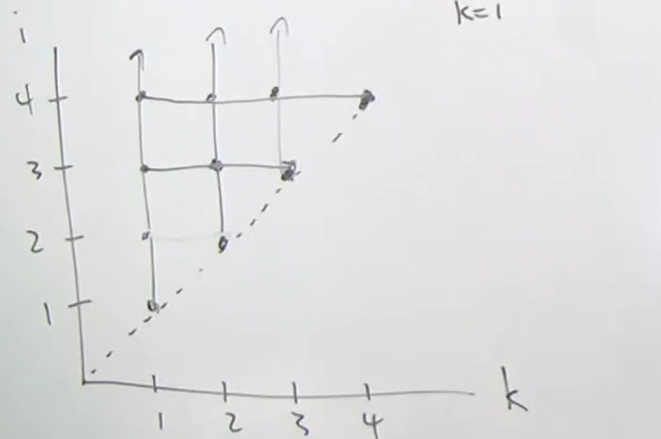 i
k=1
4
3
2
1
1 2 3 4 k